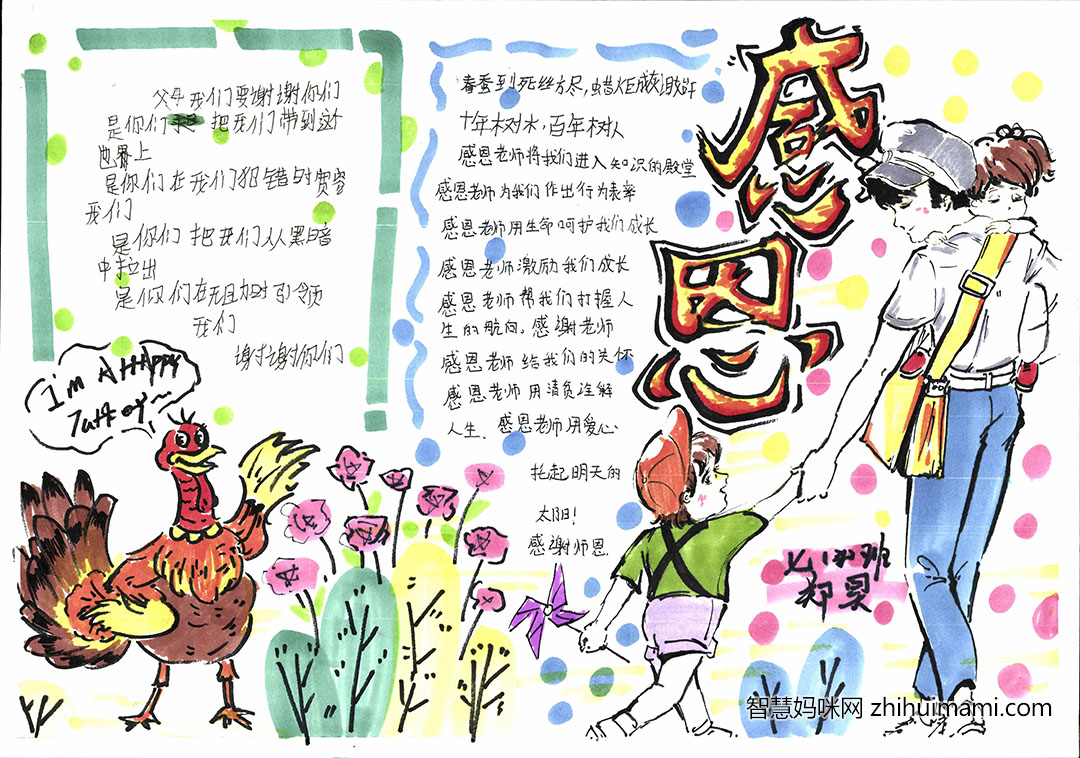 父母我们要谢谢你们
是你们 把我们带到这个
世界上
是你们在我们犯错时宽容
我们
是你们把我们从黑暗
中拉出
是你们在无助时引领
我们
谢谢你们
I'm A HAppy
春蚕到死丝方尽,蜡炬成灰泪
十年树木,百年树人
感恩老师将我们进入知识的殿堂
感恩老师为我们作出行为表率
感恩老师用生命呵护我们成长
感恩老师激励我们成长
感恩老师帮我们打握人
生的航向。感谢老师
感恩老师给我们的关怀
感恩老师用清贫诠解
人生、感恩老师用爱心
托起明天的
太阳!
感谢师恩.
感
恩
班
郑昊
智慧妈咪网 zhihuimami.com